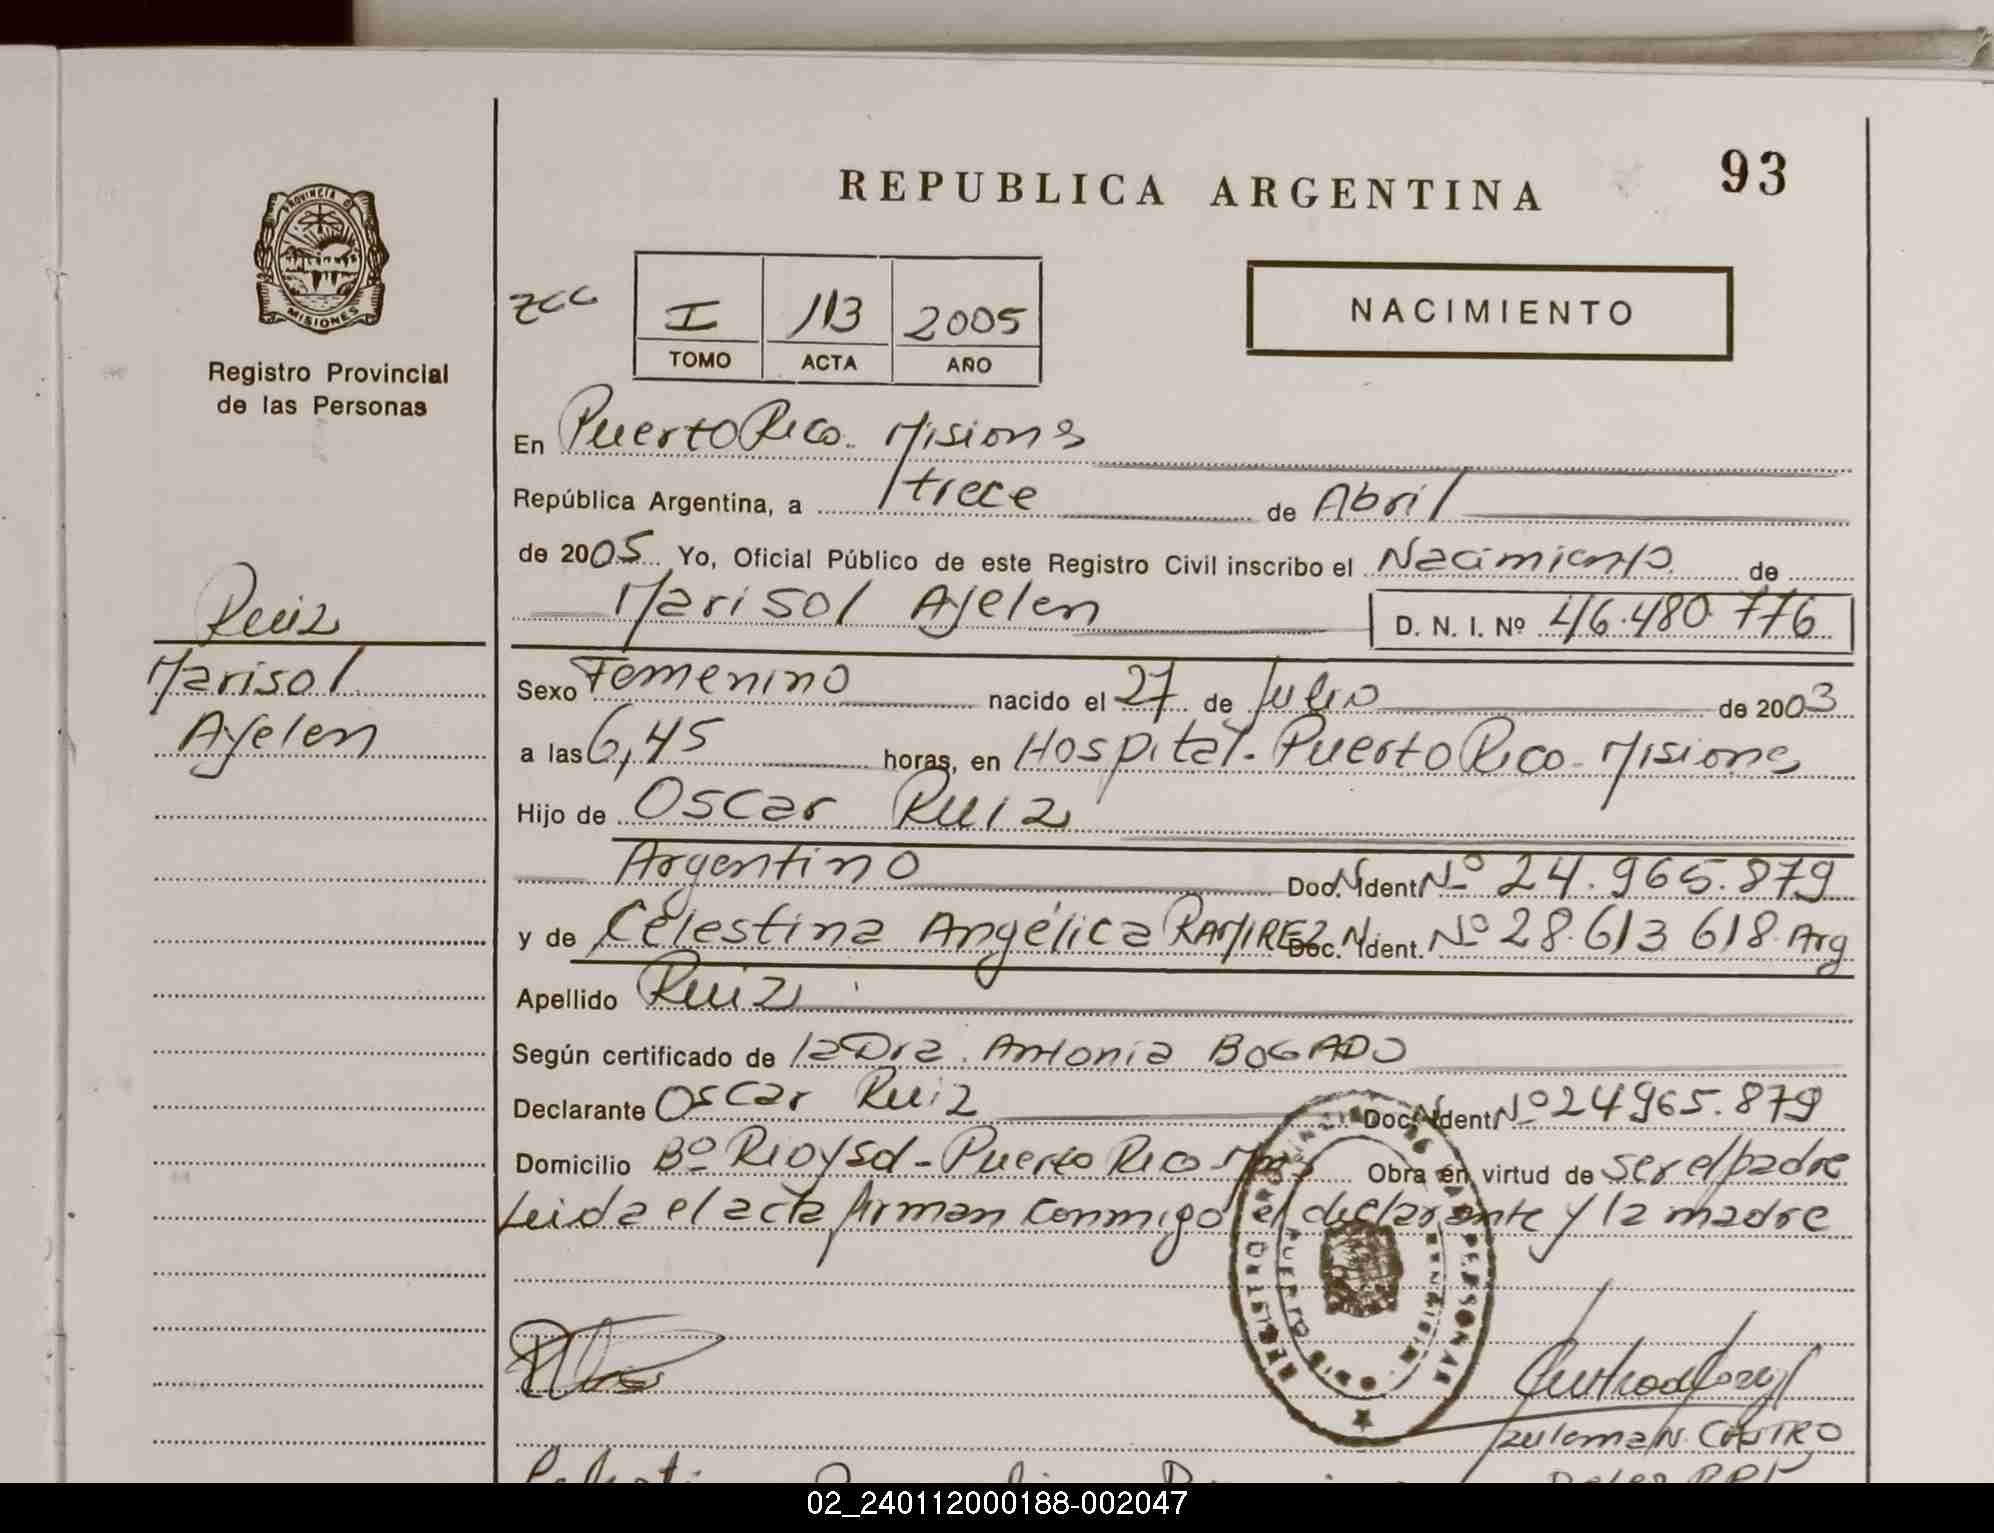 REPUBLICA ARGENTINA
93
PROVINCIA DE
MISIONES
Registro Provincial
de las Personas
I 113 2005
TOMO ACTA AÑO
NACIMIENTO
En Puerto Rico. Misiones
República Argentina, a trece de Abril
de 2005 Yo, Oficial Público de este Registro Civil inscribo el Nacimiento de
Marisol Ayelen D. N. I. Nº 46.480.776
Ruiz
Marisol
Ayelen
Sexo Femenino nacido el 27 de Julio de 2003
a las 6,45 horas, en Hospital. Puerto Rico. Misiones
Hijo de Oscar Ruiz
Argentino Doc. N. Ident. Nº 24.965.879
y de Celestina Angélica RAMIREZ Doc. N. Ident. Nº 28.613 618. Arg
Apellido Ruiz
Según certificado de la Dra. Antonia BOGADO
Declarante Oscar Ruiz Doc. N. Ident. Nº 24965.879
Domicilio Bº Rioysol - Puerto Rico Mnes Obra en virtud de ser el padre
Leida el acta firman conmigo el declarante y la madre
REGISTRO PROVINCIAL DE LAS PERSONAS
PUERTO RICO
MISIONES
Zulema N. CASTRO
02_240112000188-002047